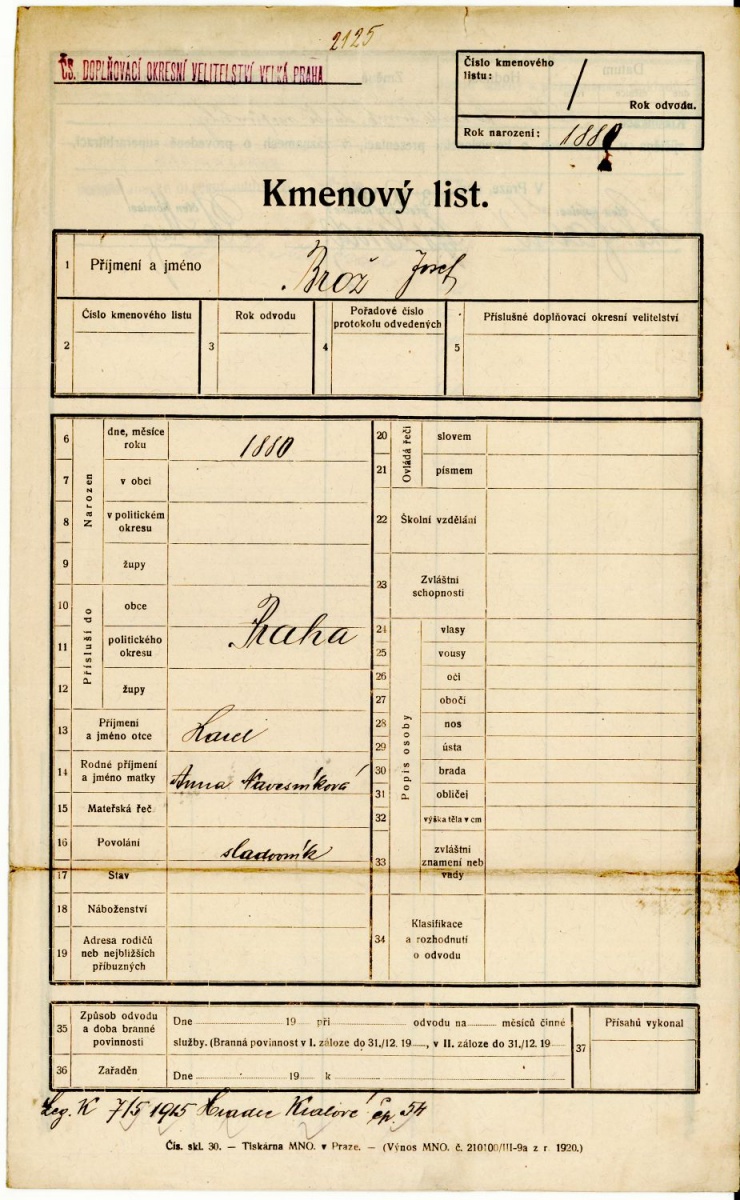 2125
ČS. DOPLŇOVACÍ OKRESNÍ VELITELSTVÍ VELKÁ PRAHA.
Číslo kmenového
listu:
/
Rok odvodu.
Rok narození: 1880
Kmenový list.
1 Příjmení a jméno Brož Josef
2 Číslo kmenového listu
3 Rok odvodu
4 Pořadové číslo
protokolu odvedených
5 Příslušné doplňovací okresní velitelství
Narozen
6 dne, měsíce
roku 1880
7 v obci
8 v politickém
okresu
9 župy
Přísluší do
10 obce
Praha
11 politického
okresu
12 župy
13 Příjmení
a jméno otce Karel
14 Rodné příjmení
a jméno matky Anna
15 Mateřská řeč
16 Povolání sladovník
17 Stav
18 Náboženství
19 Adresa rodičů
neb nejbližších
příbuzných
Ovládá řeči
20 slovem
21 písmem
22 Školní vzdělání
23 Zvláštní
schopnosti
Popis osoby
24 vlasy
25 vousy
26 oči
27 obočí
28 nos
29 ústa
30 brada
31 obličej
32 výška těla v cm
33 zvláštní
znamení neb
vady
34 Klasifikace
a rozhodnutí
o odvodu
35 Způsob odvodu
a doba branné
povinnosti
Dne 19 při odvodu na měsíců činné
služby. (Branná povinnost v I. záloze do 31./12. 19 , v II. záloze do 31./12. 19
36 Zařaděn
Dne 19 k
37 Přísahů vykonal
Leg. K 7/5 1915 Hradec Králové čp. 54
Čís. skl. 30. — Tiskárna MNO. v Praze. — (Výnos MNO. č. 210100/III-9a z r. 1920.)